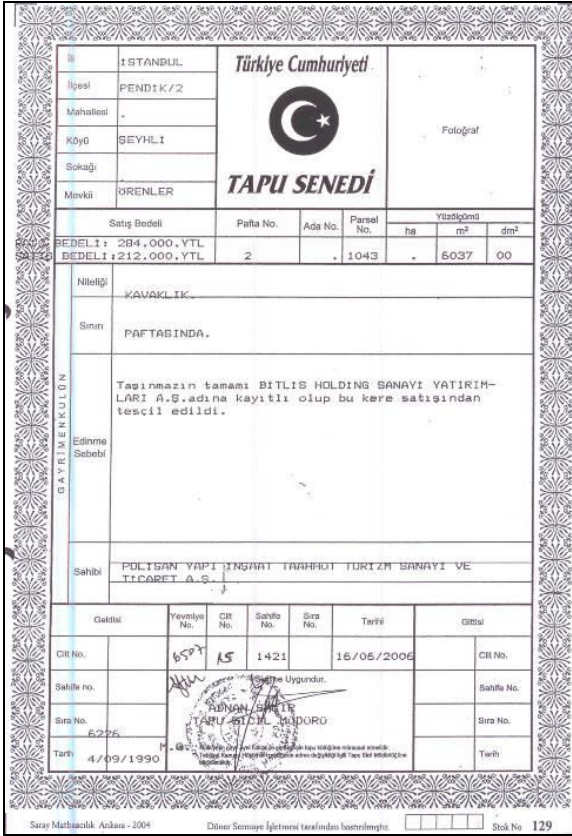 İli İSTANBUL
İlçesi PENDİK/2
Mahallesi -
Köyü ŞEYHLİ
Sokağı
Mevkii ÖRENLER
Türkiye Cumhuriyeti
TAPU SENEDİ
Fotoğraf
Satış Bedeli Pafta No. Ada No. Parsel No. Yüzölçümü
ha m² dm²
BEDELİ: 284.000.YTL
SATIŞ BEDELİ:212.000.YTL 2 . 1043 . 6037 00
GAYRİMENKULÜN
Niteliği KAVAKLIK.
Sınırı PAFTASINDA.
Edinme Sebebi
Taşınmazın tamamı BİTLİS HOLDİNG SANAYİ YATIRIM-
LARI A.Ş.adına kayıtlı olup bu kere satışından
tesçil edildi.
Sahibi
POLİSAN YAPI İNŞAAT TAAHHÜT TURİZM SANAYİ VE
TİCARET A.Ş.
Geldisi Yevmiye No. Cilt No. Sahife No. Sıra No. Tarihi Gittisi
Cilt No. 6507 15 1421 16/06/2006 Cilt No.
Sahife no. Uygundur. Sahife No.
ADNAN
Sıra No. 6226 TAPU SİCİL MÜDÜRÜ Sıra No.
Tarih 4/09/1990 Tarih
Saray Matbaacılık Ankara - 2004 Döner Sermaye İşletmesi tarafından bastırılmıştır. Stok No 129